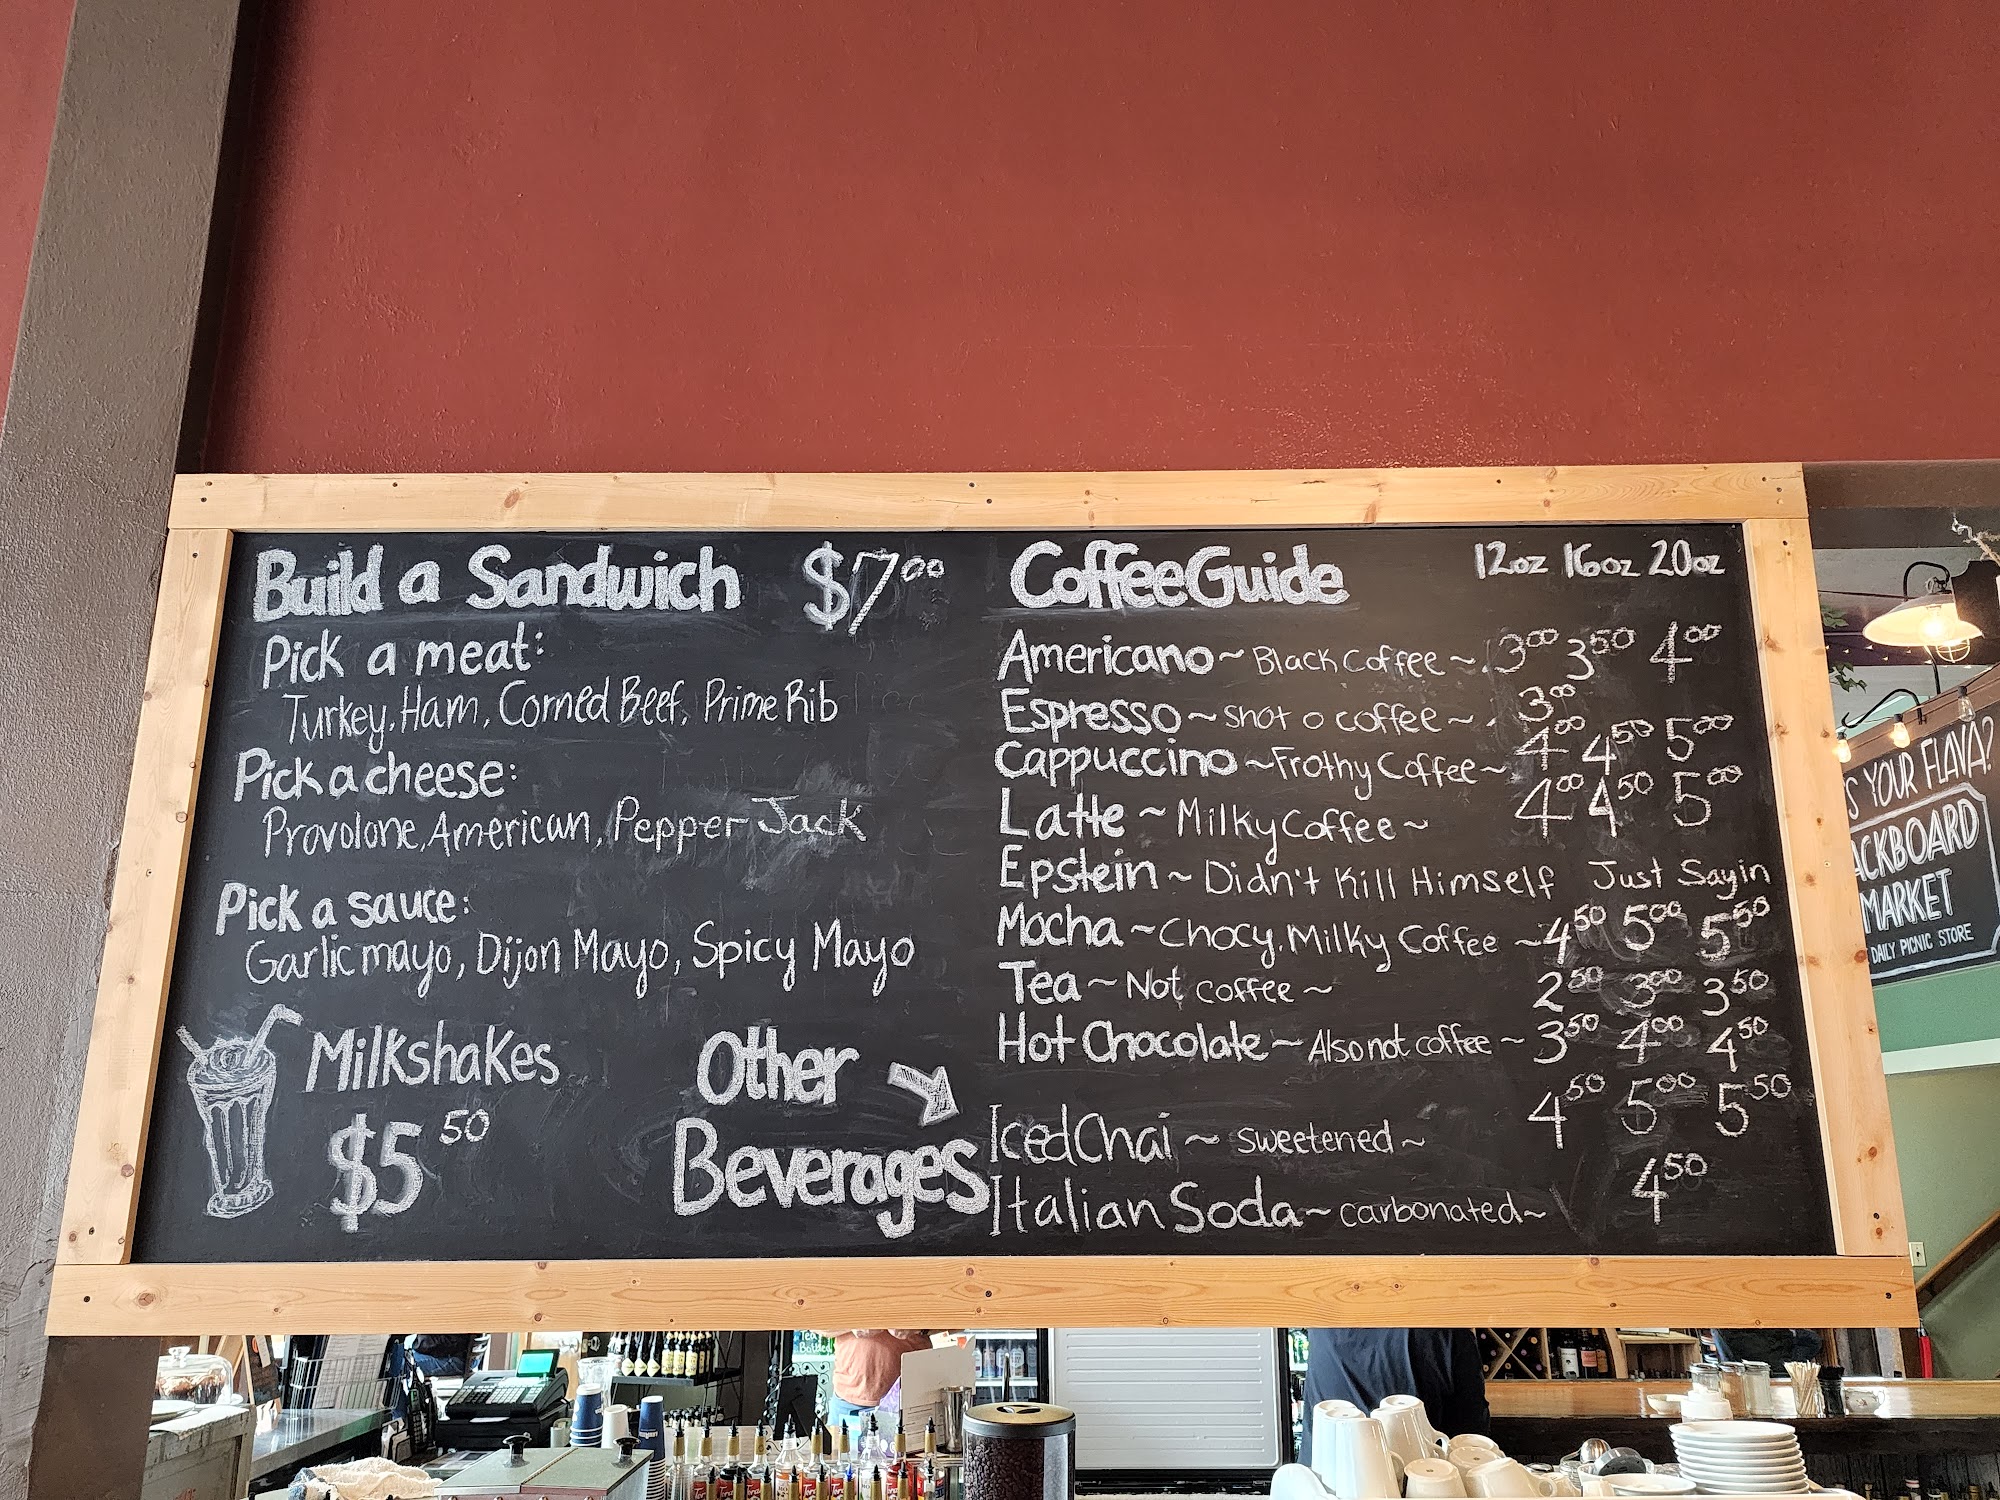 Build a Sandwich $7.00
Pick a meat:
Turkey, Ham, Corned Beef, Prime Rib
Pick a cheese:
Provolone, American, Pepper Jack
Pick a sauce:
Garlic mayo, Dijon Mayo, Spicy Mayo
Milkshakes
$5.50
Other
Beverages
Coffee Guide 12oz 16oz 20oz
Americano ~ Black Coffee ~ 3.00 3.50 4.00
Espresso ~ shot o coffee ~ 3.00
Cappuccino ~ Frothy Coffee ~ 4.00 4.50 5.00
Latte ~ Milky Coffee ~ 4.00 4.50 5.00
Epstein ~ Didn't Kill Himself Just Sayin
Mocha ~ Chocy, Milky Coffee ~ 4.50 5.00 5.50
Tea ~ Not coffee ~ 2.50 3.00 3.50
Hot Chocolate ~ Also not coffee ~ 3.50 4.00 4.50
Iced Chai ~ sweetened ~ 4.50 5.00 5.50
Italian Soda ~ carbonated ~ 4.50
YOUR FLAVA?
ACKBOARD
MARKET
DAILY PICNIC STORE